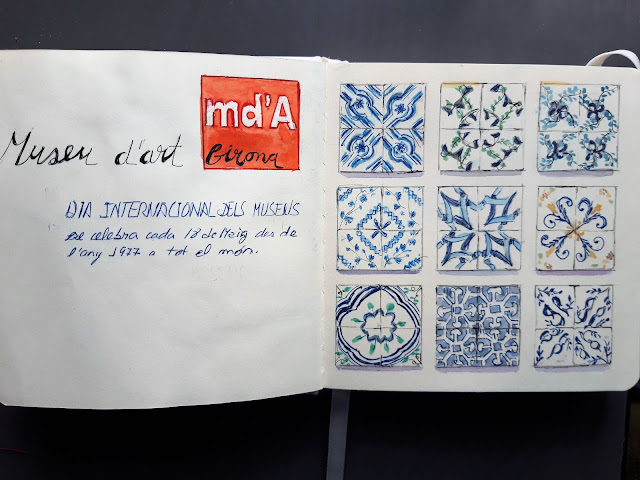 md'A
Museu d'art Girona
DIA INTERNACIONAL DELS MUSEUS
se celebra cada 18 de Maig des de
l'any 1977 a tot el món.